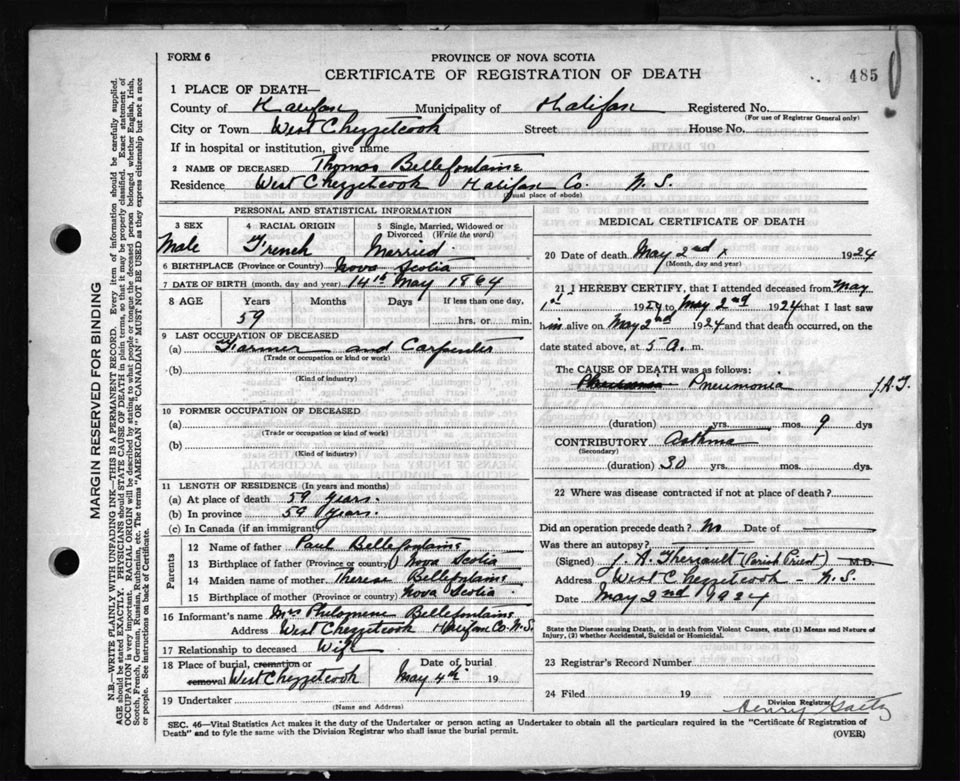 FORM 6
PROVINCE OF NOVA SCOTIA
CERTIFICATE OF REGISTRATION OF DEATH
485
1 PLACE OF DEATH—
County of Halifax Municipality of Halifax Registered No.
(For use of Registrar General only)
City or Town West Chezzetcook Street House No.
If in hospital or institution, give name
2 NAME OF DECEASED Thomas Bellefontaine
Residence West Chezzetcook Halifax Co. N. S.
(Usual place of abode)
PERSONAL AND STATISTICAL INFORMATION
3 SEX 4 RACIAL ORIGIN 5 Single, Married, Widowed or
Divorced (Write the word)
Male French Married
6 BIRTHPLACE (Province or Country) Nova Scotia
7 DATE OF BIRTH (month, day and year) 14th May 1864
8 AGE Years Months Days If less than one day,
59 hrs. or min.
9 LAST OCCUPATION OF DECEASED
(a) Farmer and Carpenter
(Trade or occupation or kind of work)
(b)
(Kind of industry)
10 FORMER OCCUPATION OF DECEASED
(a)
(Trade or occupation or kind of work)
(b)
(Kind of industry)
11 LENGTH OF RESIDENCE (In years and months)
(a) At place of death 59 Years.
(b) In province 59 Years.
(c) In Canada (if an immigrant)
Parents
12 Name of father Paul Bellefontaine
13 Birthplace of father (Province or country) Nova Scotia
14 Maiden name of mother Therese Bellefontaine
15 Birthplace of mother (Province or country) Nova Scotia
16 Informant's name Mrs Philomene Bellefontaine
Address West Chezzetcook Halifax Co. N. S.
17 Relationship to deceased Wife
18 Place of burial, cremation or Date of burial
removal West Chezzetcook May 4th 19
19 Undertaker
(Name and Address)
MEDICAL CERTIFICATE OF DEATH
20 Date of death May 2nd 1924
(Month, day and year)
21 I HEREBY CERTIFY, that I attended deceased from May
1st 1924 to May 2nd 1924 that I last saw
him alive on May 2nd 1924 and that death occurred, on
date stated above, at 5 a. m.
The CAUSE OF DEATH was as follows:
Pneumonia J.A.T.
(duration) yrs. mos. 9 dys
CONTRIBUTORY Asthma
(Secondary)
(duration) 30 yrs. mos. dys.
22 Where was disease contracted if not at place of death?
Did an operation precede death? No Date of
Was there an autopsy?
(Signed) J. A. Theriault (Parish Priest) M.D.
Address West Chezzetcook - N. S.
Date May 2nd 1924
State the Disease causing Death, or in death from Violent Causes, state (1) Means and Nature of
Injury, (2) whether Accidental, Suicidal or Homicidal.
23 Registrar's Record Number
24 Filed 19
Division Registrar
Henry Gaetz
SEC. 46—Vital Statistics Act makes it the duty of the Undertaker or person acting as Undertaker to obtain all the particulars required in the "Certificate of Registration of
Death" and to fyle the same with the Division Registrar who shall issue the burial permit.
(OVER)
MARGIN RESERVED FOR BINDING
N.B.—WRITE PLAINLY WITH UNFADING INK—THIS IS A PERMANENT RECORD. Every item of information should be carefully supplied.
AGE should be stated EXACTLY. PHYSICIANS should STATE CAUSE OF DEATH in plain terms, so that it may be properly classified. Exact statement of
OCCUPATION is very important. RACIAL ORIGIN will be described by stating to what people or tongue the deceased person belonged whether English, Irish,
Scotch, French, German, Russian, Ruthenian, etc. The terms "AMERICAN" OR "CANADIAN" MUST NOT BE USED as they express citizenship but not a race
or people. See instructions on back of Certificate.